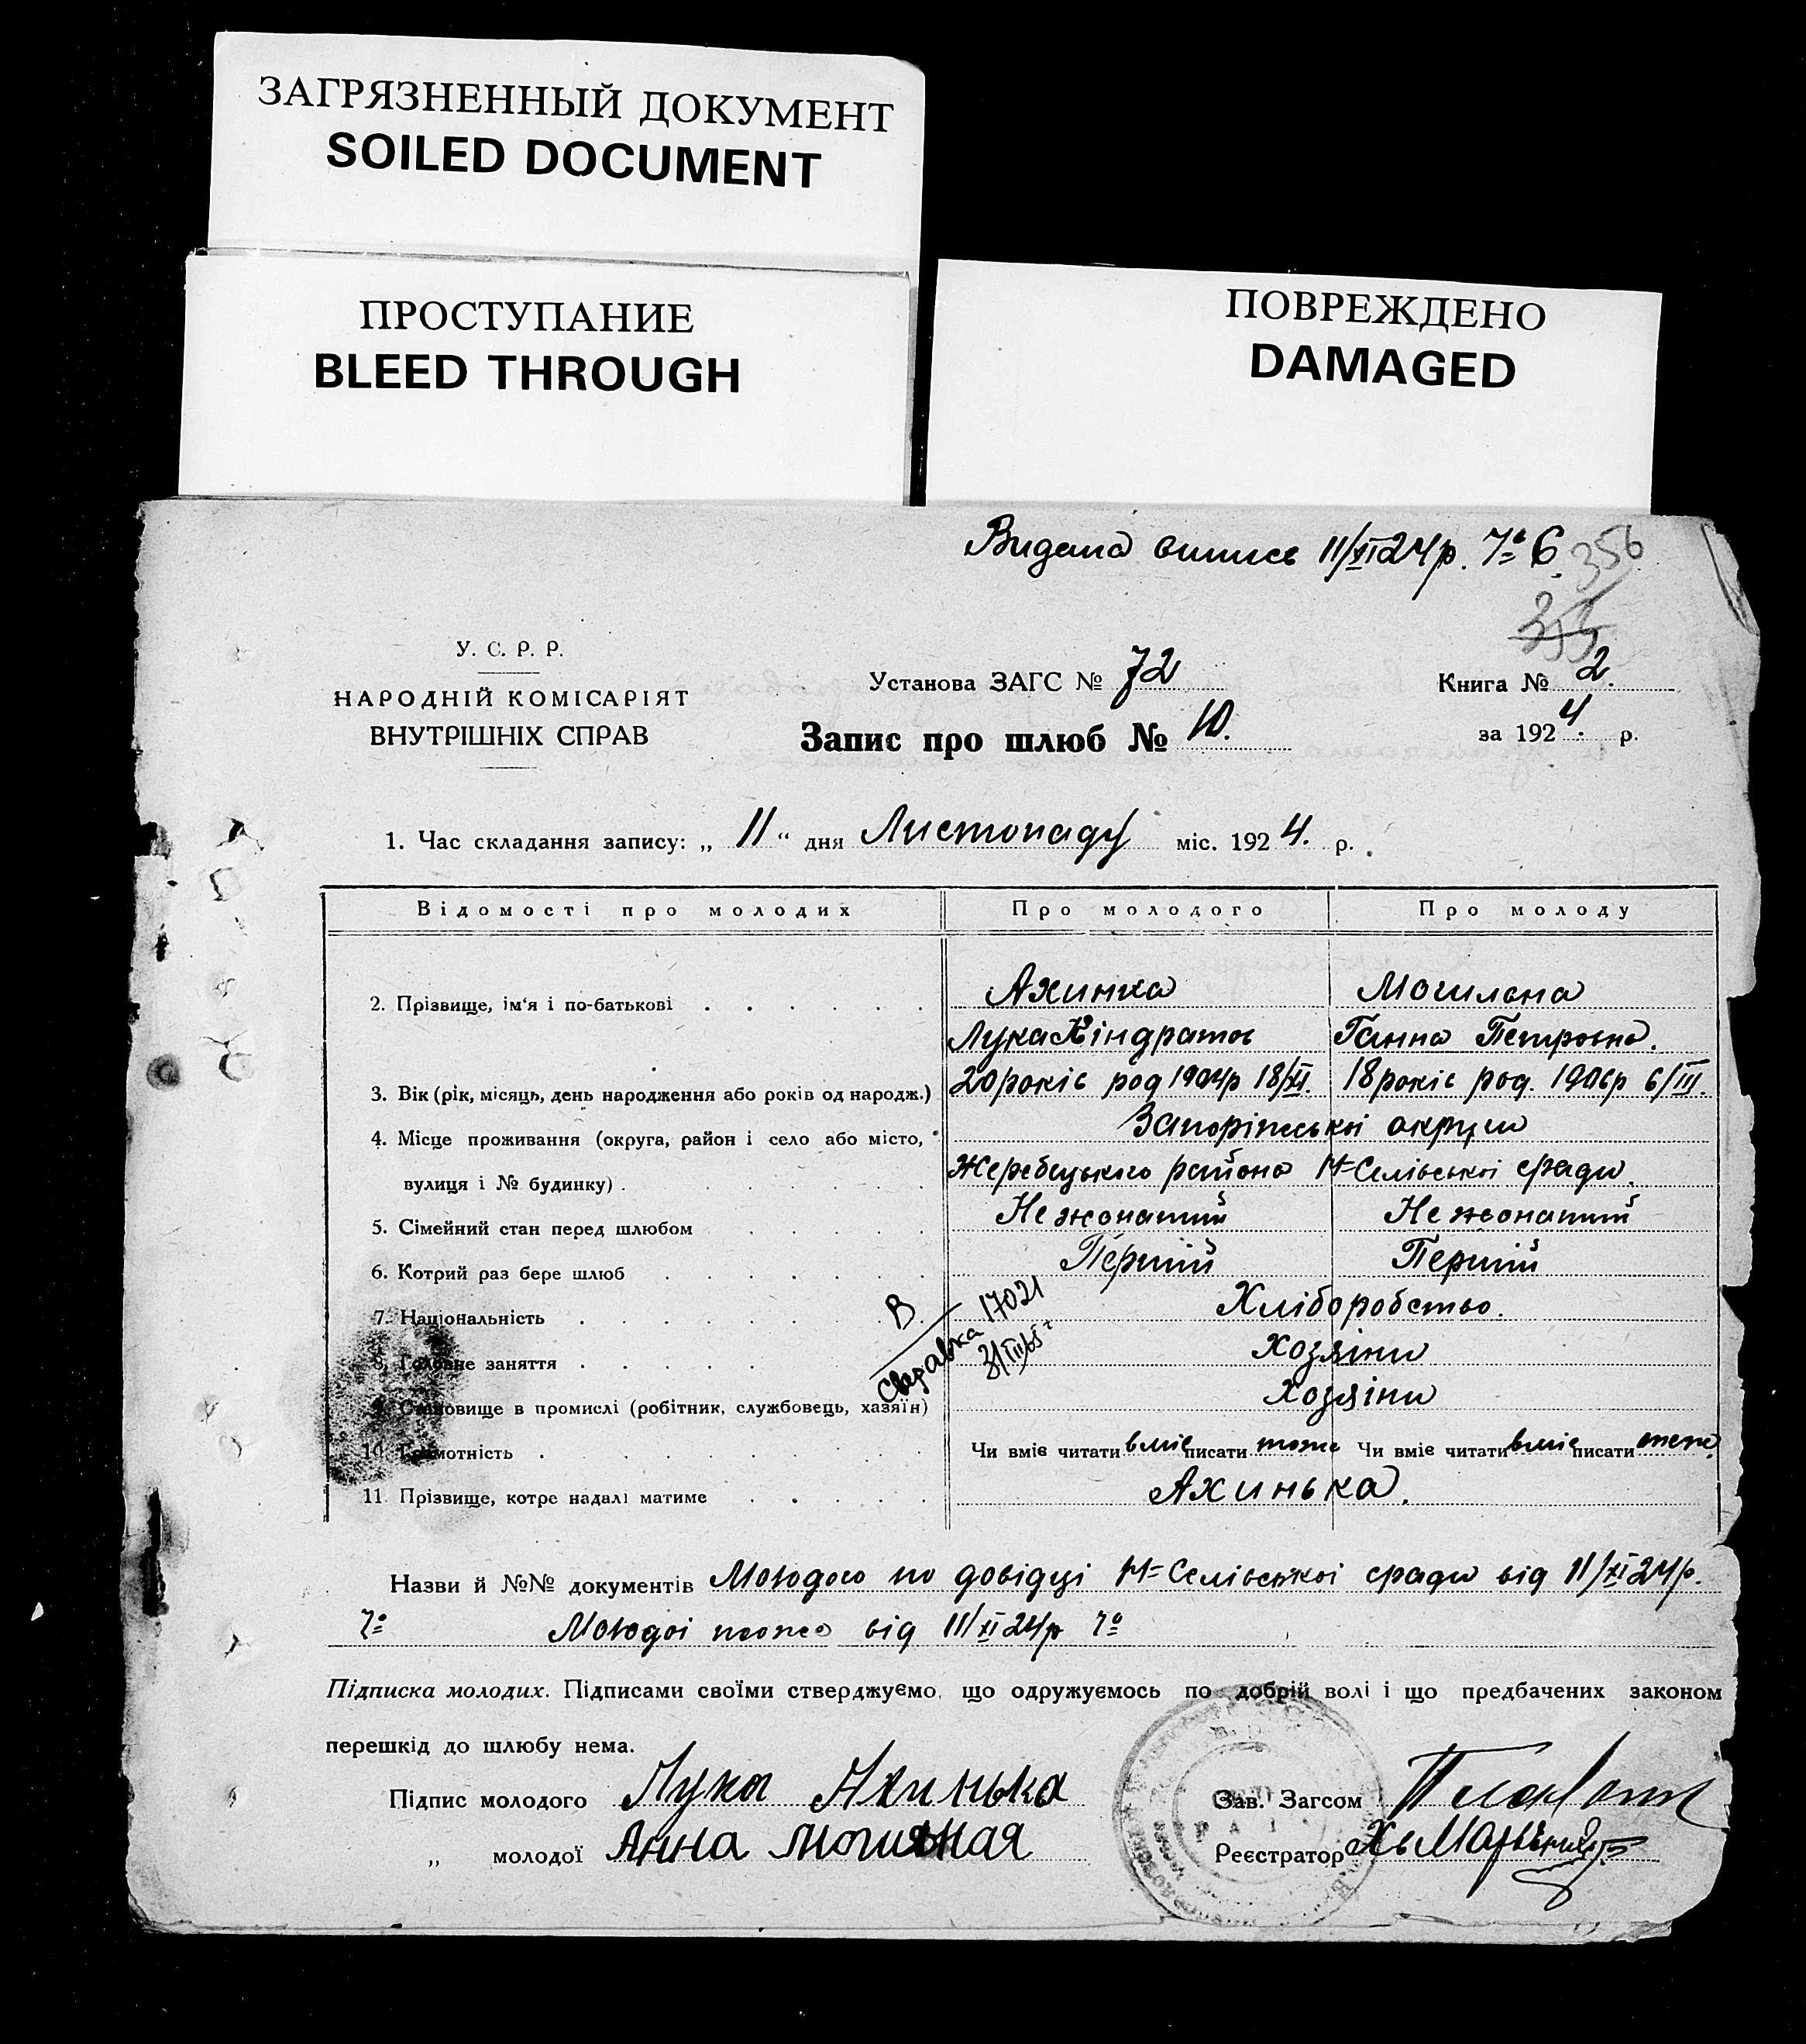 ЗАГРЯЗНЕННЫЙ ДОКУМЕНТ
SOILED DOCUMENT
ПРОСТУПАНИЕ
BLEED THROUGH
ПОВРЕЖДЕНО
DAMAGED
Видана випись 11/XI 24 р. № 6.
356
355
У. С. Р. Р.
НАРОДНІЙ КОМІСАРІЯТ
ВНУТРІШНІХ СПРАВ
Установа ЗАГС № 72
Запис про шлюб № 10.
Книга № 2.
за 1924. р.
1. Час складання запису: „ 11 “ дня Листопаду міс. 1924. р.
Відомості про молодих Про молодого Про молоду
2. Прізвище, ім'я і по-батькові Ахинка Могильна
Лука Кіндратов Ганна Петровна.
3. Вік (рік, місяць, день народження або років од народж.) 20 років род 1904р 18/XI. 18 років род. 1906р 6/III.
4. Місце проживання (округа, район і село або місто, Запоріжської округи
вулиця і № будинку) Жеребецького района Н-Селівської сради.
5. Сімейний стан перед шлюбом Не жонатий Не жонатий
6. Котрий раз бере шлюб Перший Перший
7. Національність Хліборобство.
8. Головне заняття Хозяіни
9. Становище в промислі (робітник, службовець, хазяїн) Хозяіни
10. Грамотність Чи вміє читати вміє писати тоже Чи вміє читати вміє писати теж
11. Прізвище, котре надалі матиме Ахинька.
В.
Справка 17021
Назви й №№ документів Молодого по довідці Н-Селівської сради від 11/XI 24 р.
№ Молодої тоже від 11/XI 24 р №
Підписка молодих. Підписами своїми стверджуємо, що одружуємось по добрій волі і що предбачених законом
перешкід до шлюбу нема.
Підпис молодого Лука Ахинька
„ молодої Анна Могилная
Зав. Загсом
Реєстратор